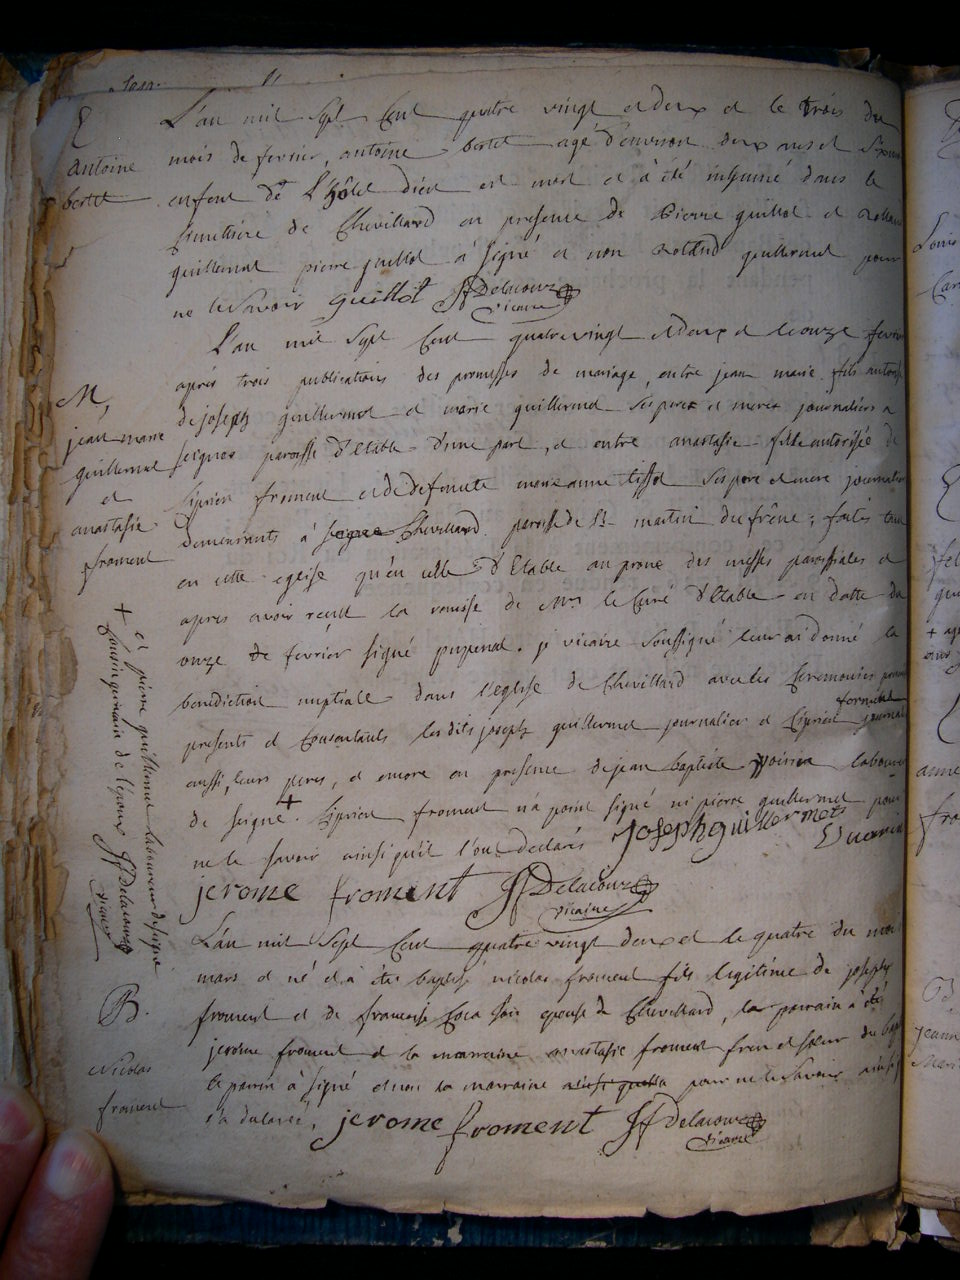 E
antoine
bertet
L'an mil Sept Cent quatre vingt et deux et le trois du
mois de fevrier, antoine bertet agé d'environ deux ans et
enfent de L'hôtel dieu est mort et à été inhumé dans le
Simettiére de Chevillard en presence de Pierre guillot et
guillermet pierre guillot à signé et non Roland guillermet pour
ne le savoir guillot JfDelacour
vicaire
M,
jean marie
guillermet
et
anastasie
froment
L'an mil Sept Cent quatrevingt et deux et le onze fevrier
aprés trois publications des promesses de mariage, entre jean marie fils autorisé
de joseph guillermet et marie guillermet Ses pere et mere journaliers a
seignor paroisse d'Etable d'une part, et entre anastasie fille autorisée de
Ciprien froment et de defunte marie anne tissot Ses pere et mere journaliers
demeurants à Chevillard paroisse de St martin du frêne; faites tant
en cette eglise qu'en celle d'Etable au prone des messes paroissiales et
apres avoir recut la remise de Mre le Curé d'Etable en datte du
onze de fevrier signé je vicaire Soussigné leur ai donné la
benediction nuptiale dans l'eglise de Chevillard avec les Ceremonies
presents et Consentants les dits joseph guillermet journalier et Ciprien froment journalier
aussi, leurs peres, et encore en presence de jean baptiste voirin laboureur
de seigne + Ciprien froment n'a point signé ni pierre guillermet pour
ne le savoir ainsi qu'il l'ont declaré Josephguillermet
jerome froment JfDelacour
vicaire
+ et pierre guillermet laboureur de seigne
Cousin germain de l'epoux JfDelacour
vicaire
B.
Nicolas
froment
L'an mil Sept Cent quatre vingt deux et le quatre du mois
mars et né et à été baptisé nicolas froment fils legitime de joseph
froment et de francoise sa epouse de Chevillard, le parrain à été
jerome froment et la marraine anastasie froment frere et soeur du
le parrin à signé et non la marraine pour ne le savoir ainsi
s'a declaré, jerome froment JfDelacour
vicaire